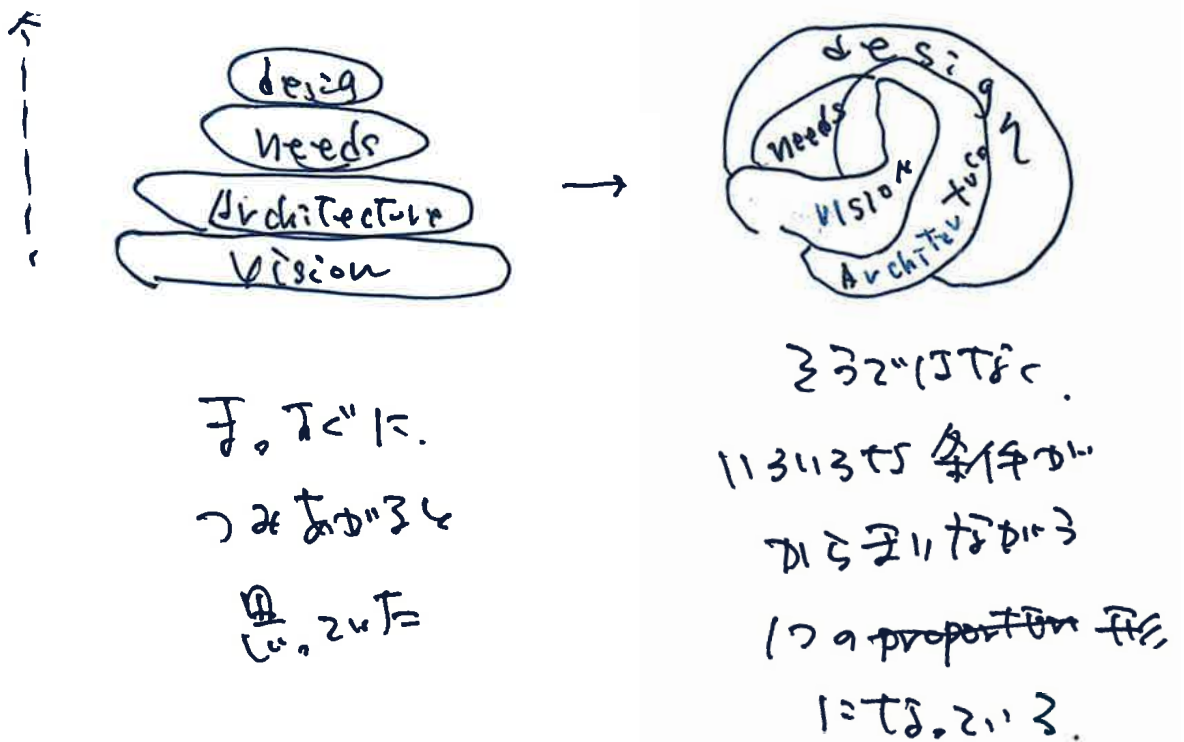 desig
needs
Architecture
Vision
design
needs
vision
Architecture
まっすぐに
つみあがると
思っていた
そうではなく
いろいろな条件が
からまいながら
1つの proportion 形
になっている.